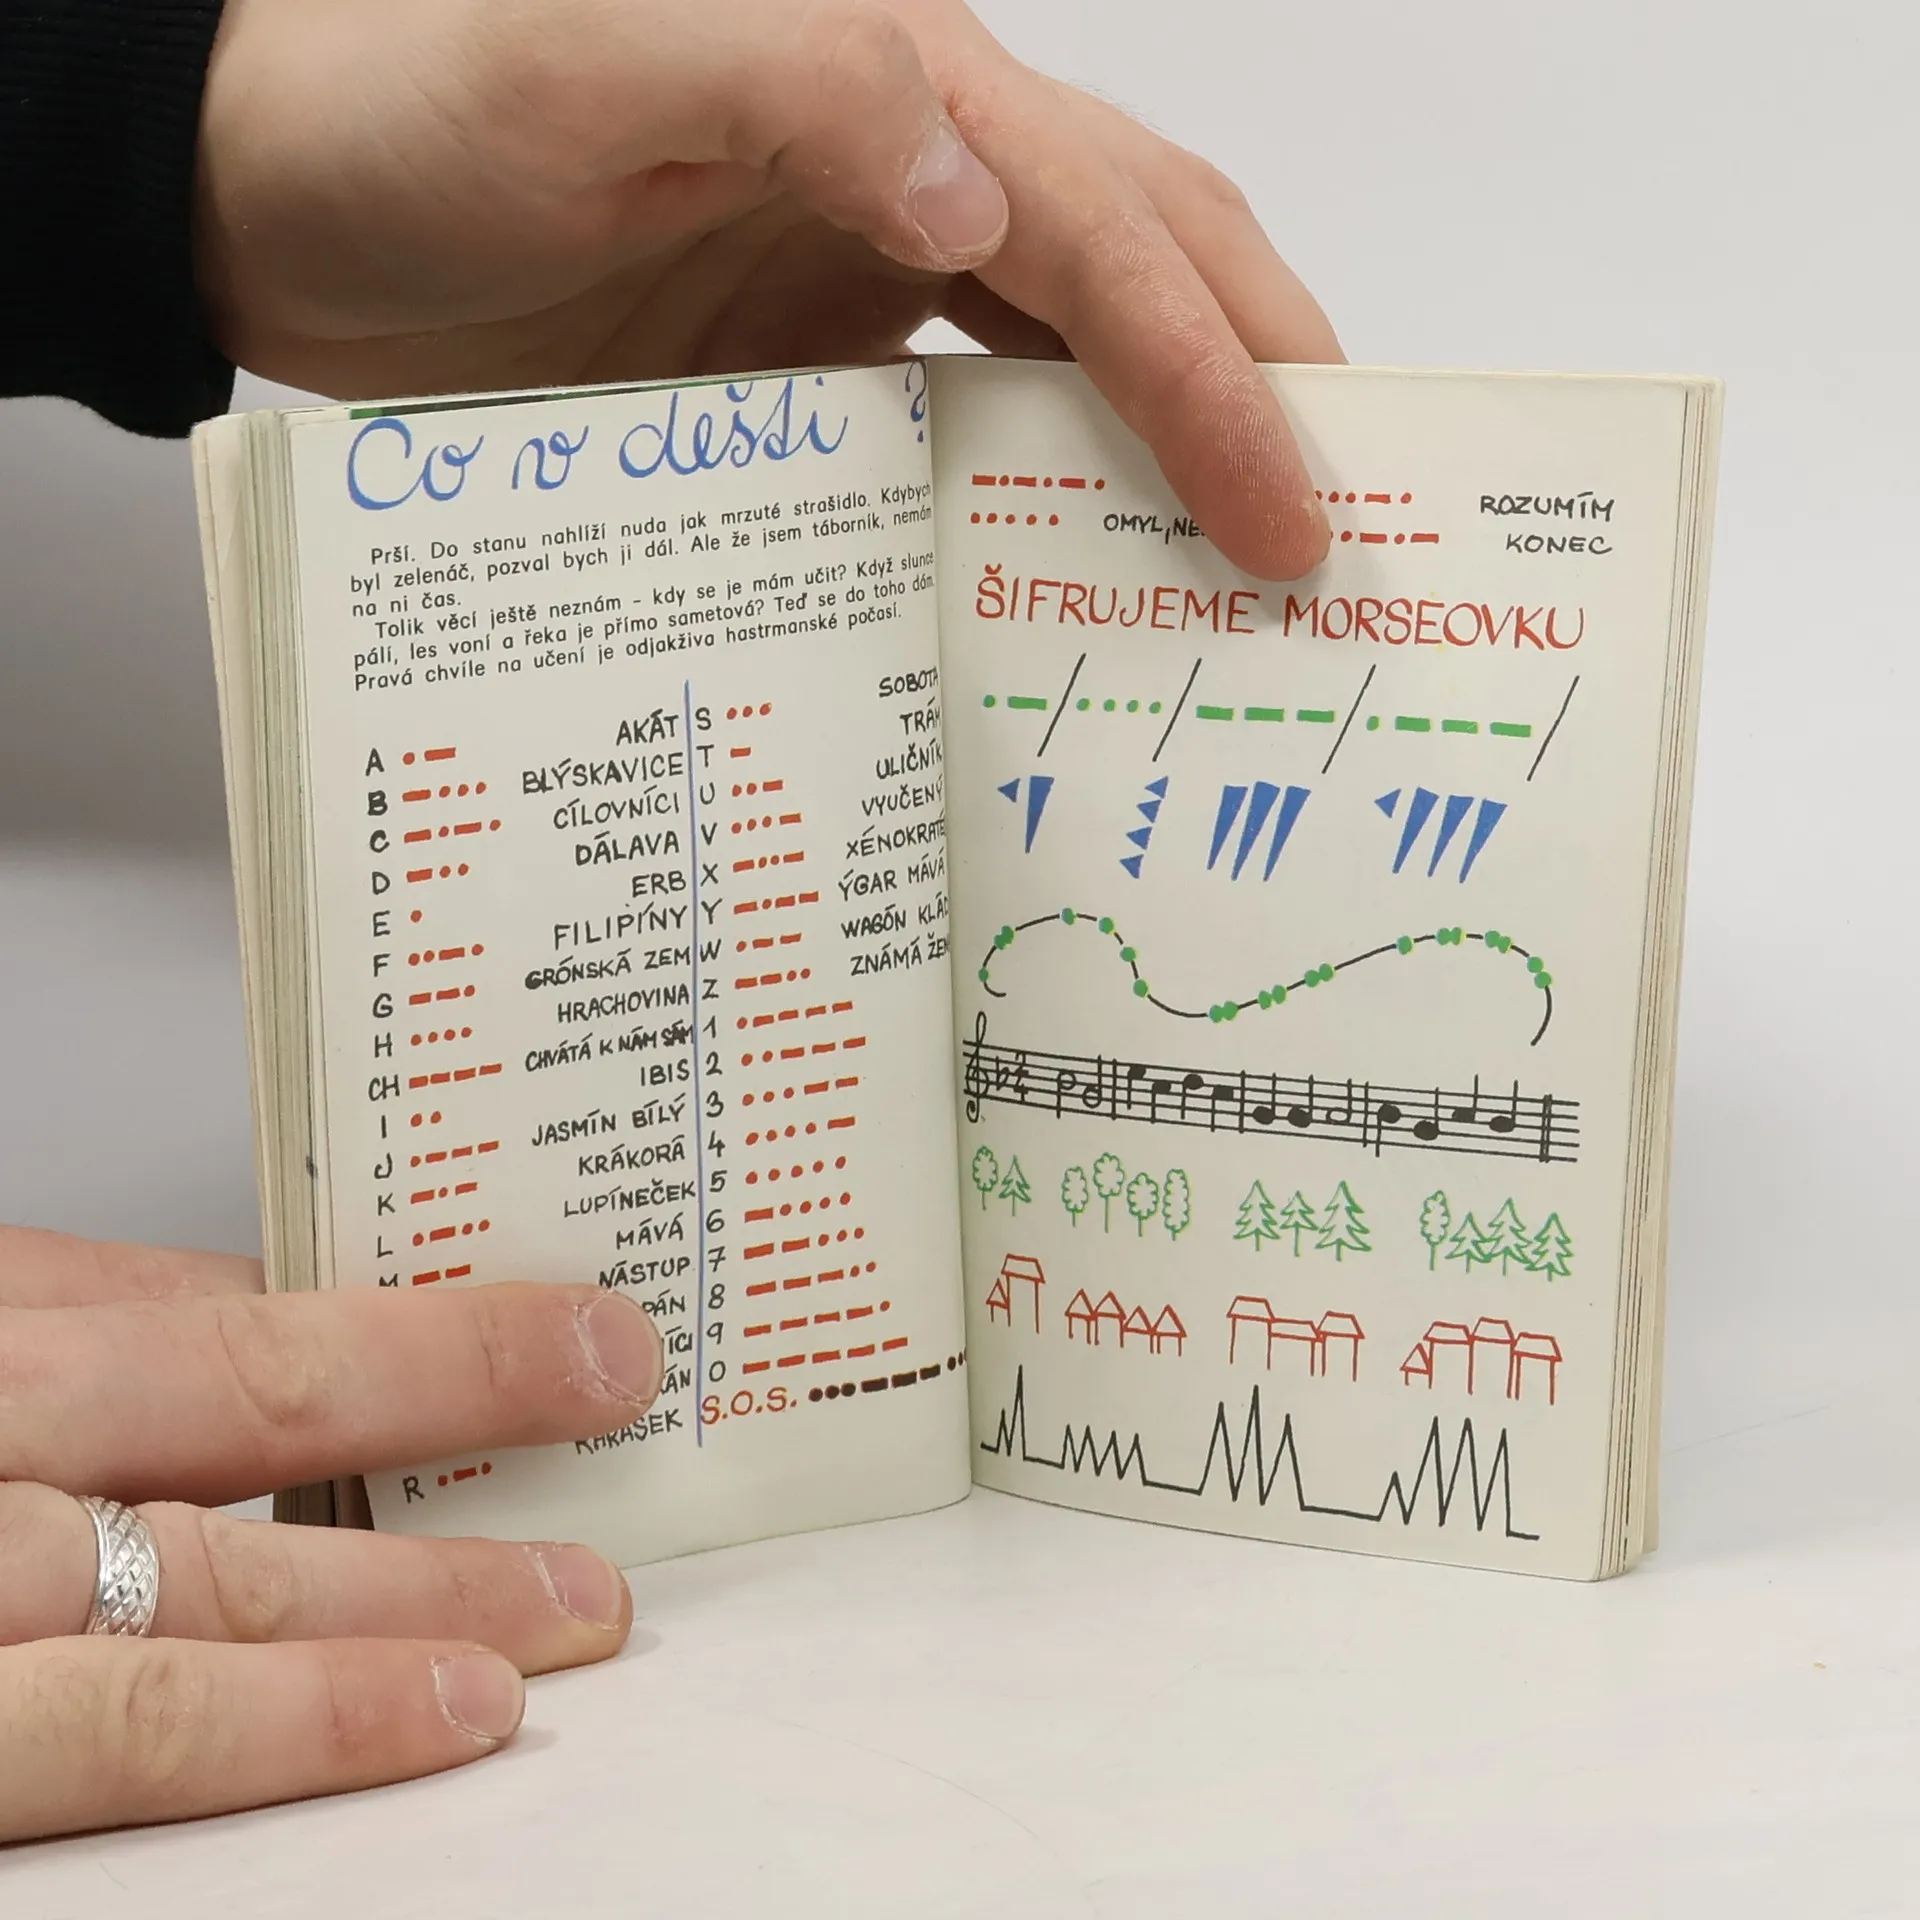 Co v dešti ?
Prší. Do stanu nahlíží nuda jak mrzuté strašidlo. Kdybych
byl zelenáč, pozval bych ji dál. Ale že jsem táborník, nemám
na ni čas.
Tolik věcí ještě neznám - kdy se je mám učit? Když slunce
pálí, les voní a řeka je přímo sametová? Teď se do toho dám.
Pravá chvíle na učení je odjakživa hastrmanské počasí.
A •— AKÁT
B —••• BLÝSKAVICE
C —•—• CÍLOVNÍCI
D —•• DÁLAVA
E • ERB
F ••—• FILIPÍNY
G ——• GRÓNSKÁ ZEM
H •••• HRACHOVINA
CH ———— CHVÁTÁ K NÁM SÁM
I •• IBIS
J •——— JASMÍN BÍLÝ
K —•— KRÁKORÁ
L •—•• LUPÍNEČEK
M —— MÁVÁ
NÁSTUP
R •—• RARÁŠEK
S ••• SOBOTA
T — TRÁM
U ••— ULIČNÍK
V •••— VYUČENÝ
X —••— XÉNOKRATÉS
Y —•—— ÝGAR MÁVÁ
W •—— WAGÓN KLÁD
Z ——•• ZNÁMÁ ŽENA
1 •————
2 ••———
3 •••——
4 ••••—
5 •••••
6 —••••
7 ——•••
8 ———••
9 ————•
0 —————
S.O.S. •••———••
—•—•—• •••—• ROZUMÍM
••••• OMYL, •—•—• KONEC
ŠIFRUJEME MORSEOVKU
•—/••••/———/•———/